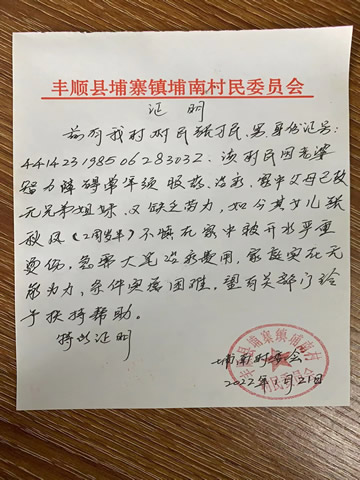 丰顺县埔寨镇埔南村民委员会
证明
兹有我村村民张习民、男、身份证号:
441423198506283032。该村民因老婆
智力障碍单年须吃药、治永、家中父母已故
无兄弟姐妹、又缺乏劳力,如今其女儿张
秋凤(2周岁半)不慎在家中被开水严重
烫伤,急需大笔治永费用,家庭实在无
能为力、条件实属困难。望有关部门给
予扶持帮助。
特此证明
埔南村委会
2022年1月21日
丰顺县埔寨镇埔南村民委员会